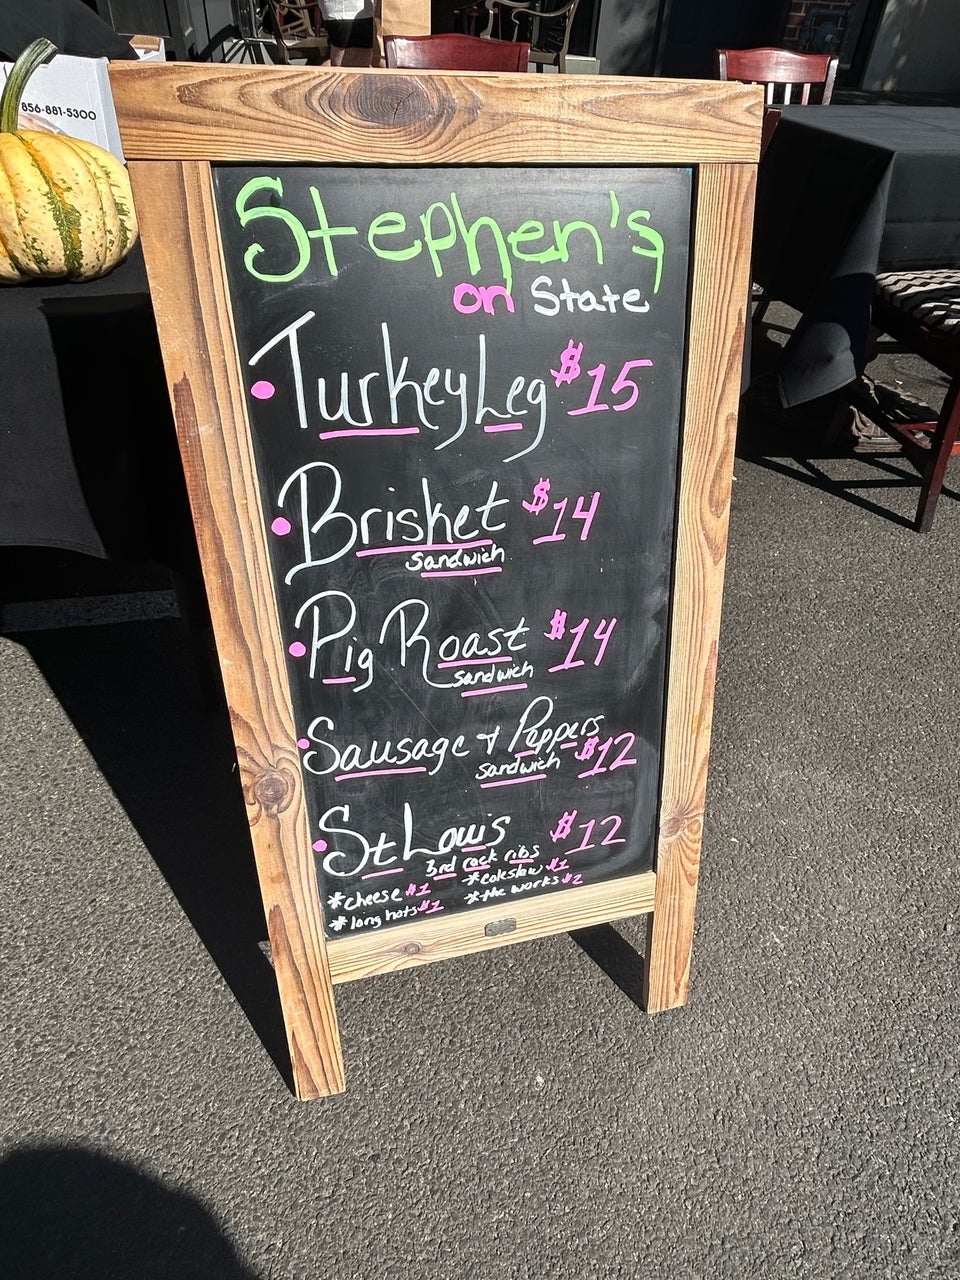 856-881-5300
Stephen's
on State
• Turkey Leg $15
• Brisket $14
sandwich
• Pig Roast $14
sandwich
• Sausage & Peppers
sandwich $12
• St Louis $12
3rd rack ribs
*cheese $1 *coleslaw $1
*long hots $1 *the works $2